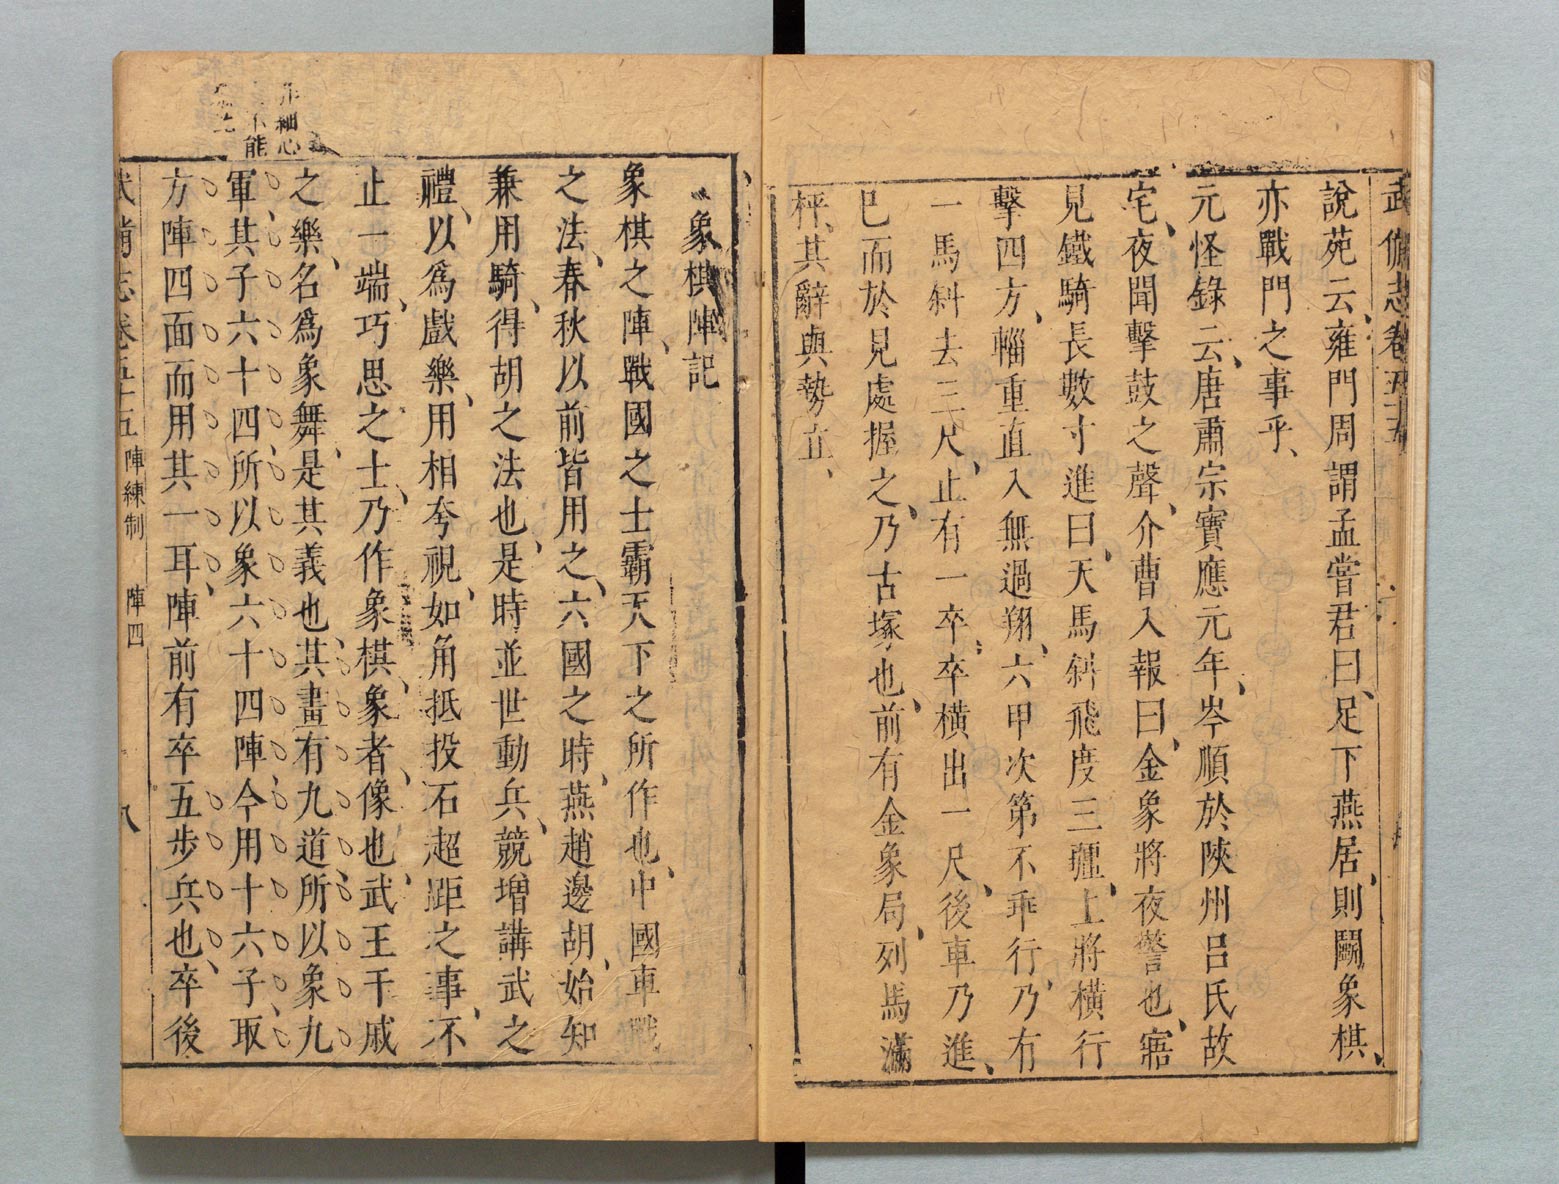 武備志卷五十五
說苑云、雍門周謂孟嘗君曰、足下燕居、則鬭象棋、
亦戰鬥之事乎、
元怪錄云、唐肅宗寶應元年、岑順於陝州呂氏故
宅、夜聞擊鼓之聲、介曹入報曰、金象將夜警也、寤
見鐵騎長數寸進曰、天馬斜飛度三疆、上將橫行
擊四方、輜重直入無過翔、六甲次第不乖行、乃有
一馬斜去三尺、止有一卒、卒橫出一尺、後車乃進、
已而於見處握之、乃古塚也、前有金象局、列馬滿
枰、其辭與勢立、
象棋陣記
象棋之陣、戰國之士霸天下之所作也、中國車戰
之法、春秋以前皆用之、六國之時、燕趙邊胡、始知
兼用騎、得胡之法也、是時並世動兵、競增講武之
禮、以爲戲樂、用相夸視、如角抵投石超距之事、不
止一端、巧思之士、乃作象棋、象者、像也、武王干戚
之樂、名爲象舞、是其義也、其畫有九道所以象九
軍其子六十四、所以象六十四陣今用十六子、取
方陣四面而用其一耳、陣前有卒五步兵也、卒後
武備志卷五十五 陣練制 陣四 八
細心
能